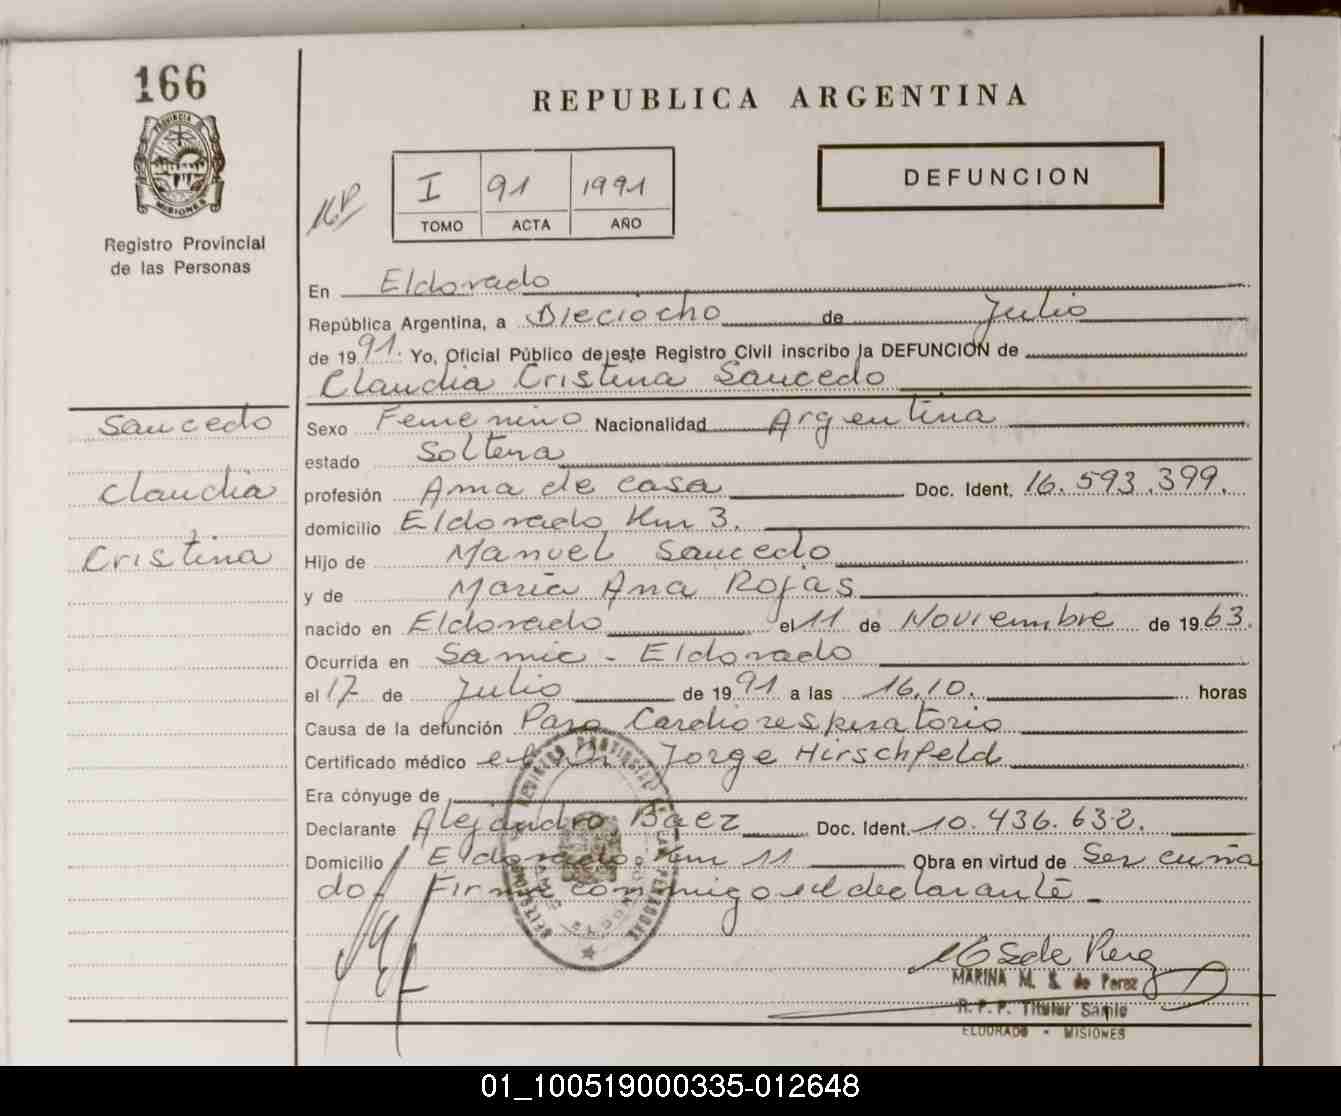 166
PROVINCIA DE
MISIONES
Registro Provincial
de las Personas
REPUBLICA ARGENTINA
I 91 1991
TOMO ACTA AÑO
DEFUNCION
En Eldorado
República Argentina, a Dieciocho de Julio
de 1991. Yo, Oficial Público de este Registro Civil inscribo la DEFUNCION de
Claudia Cristina Saucedo
Saucedo
Claudia
Cristina
Sexo Femenino Nacionalidad Argentina
estado Soltera
profesión Ama de casa Doc. Ident. 16.593.399.
domicilio Eldorado Km 3.
Hijo de Manuel Saucedo
y de María Ana Rojas
nacido en Eldorado el 11 de Noviembre de 1963.
Ocurrida en Samic - Eldorado
el 17 de Julio de 1991 a las 16.10. horas
Causa de la defunción Paro Cardiorespiratorio
Certificado médico el Dr. Jorge Hirschfeld
Era cónyuge de
Declarante Alejandro Baez Doc. Ident. 10.436.632.
Domicilio Eldorado Km 11 Obra en virtud de Ser cuña
do. Firma conmigo el declarante
REGISTRO PROVINCIAL DE LAS PERSONAS
MARINA M. S. de Perez
R.P.P. Titular Samic
ELDORADO - MISIONES
01_100519000335-012648